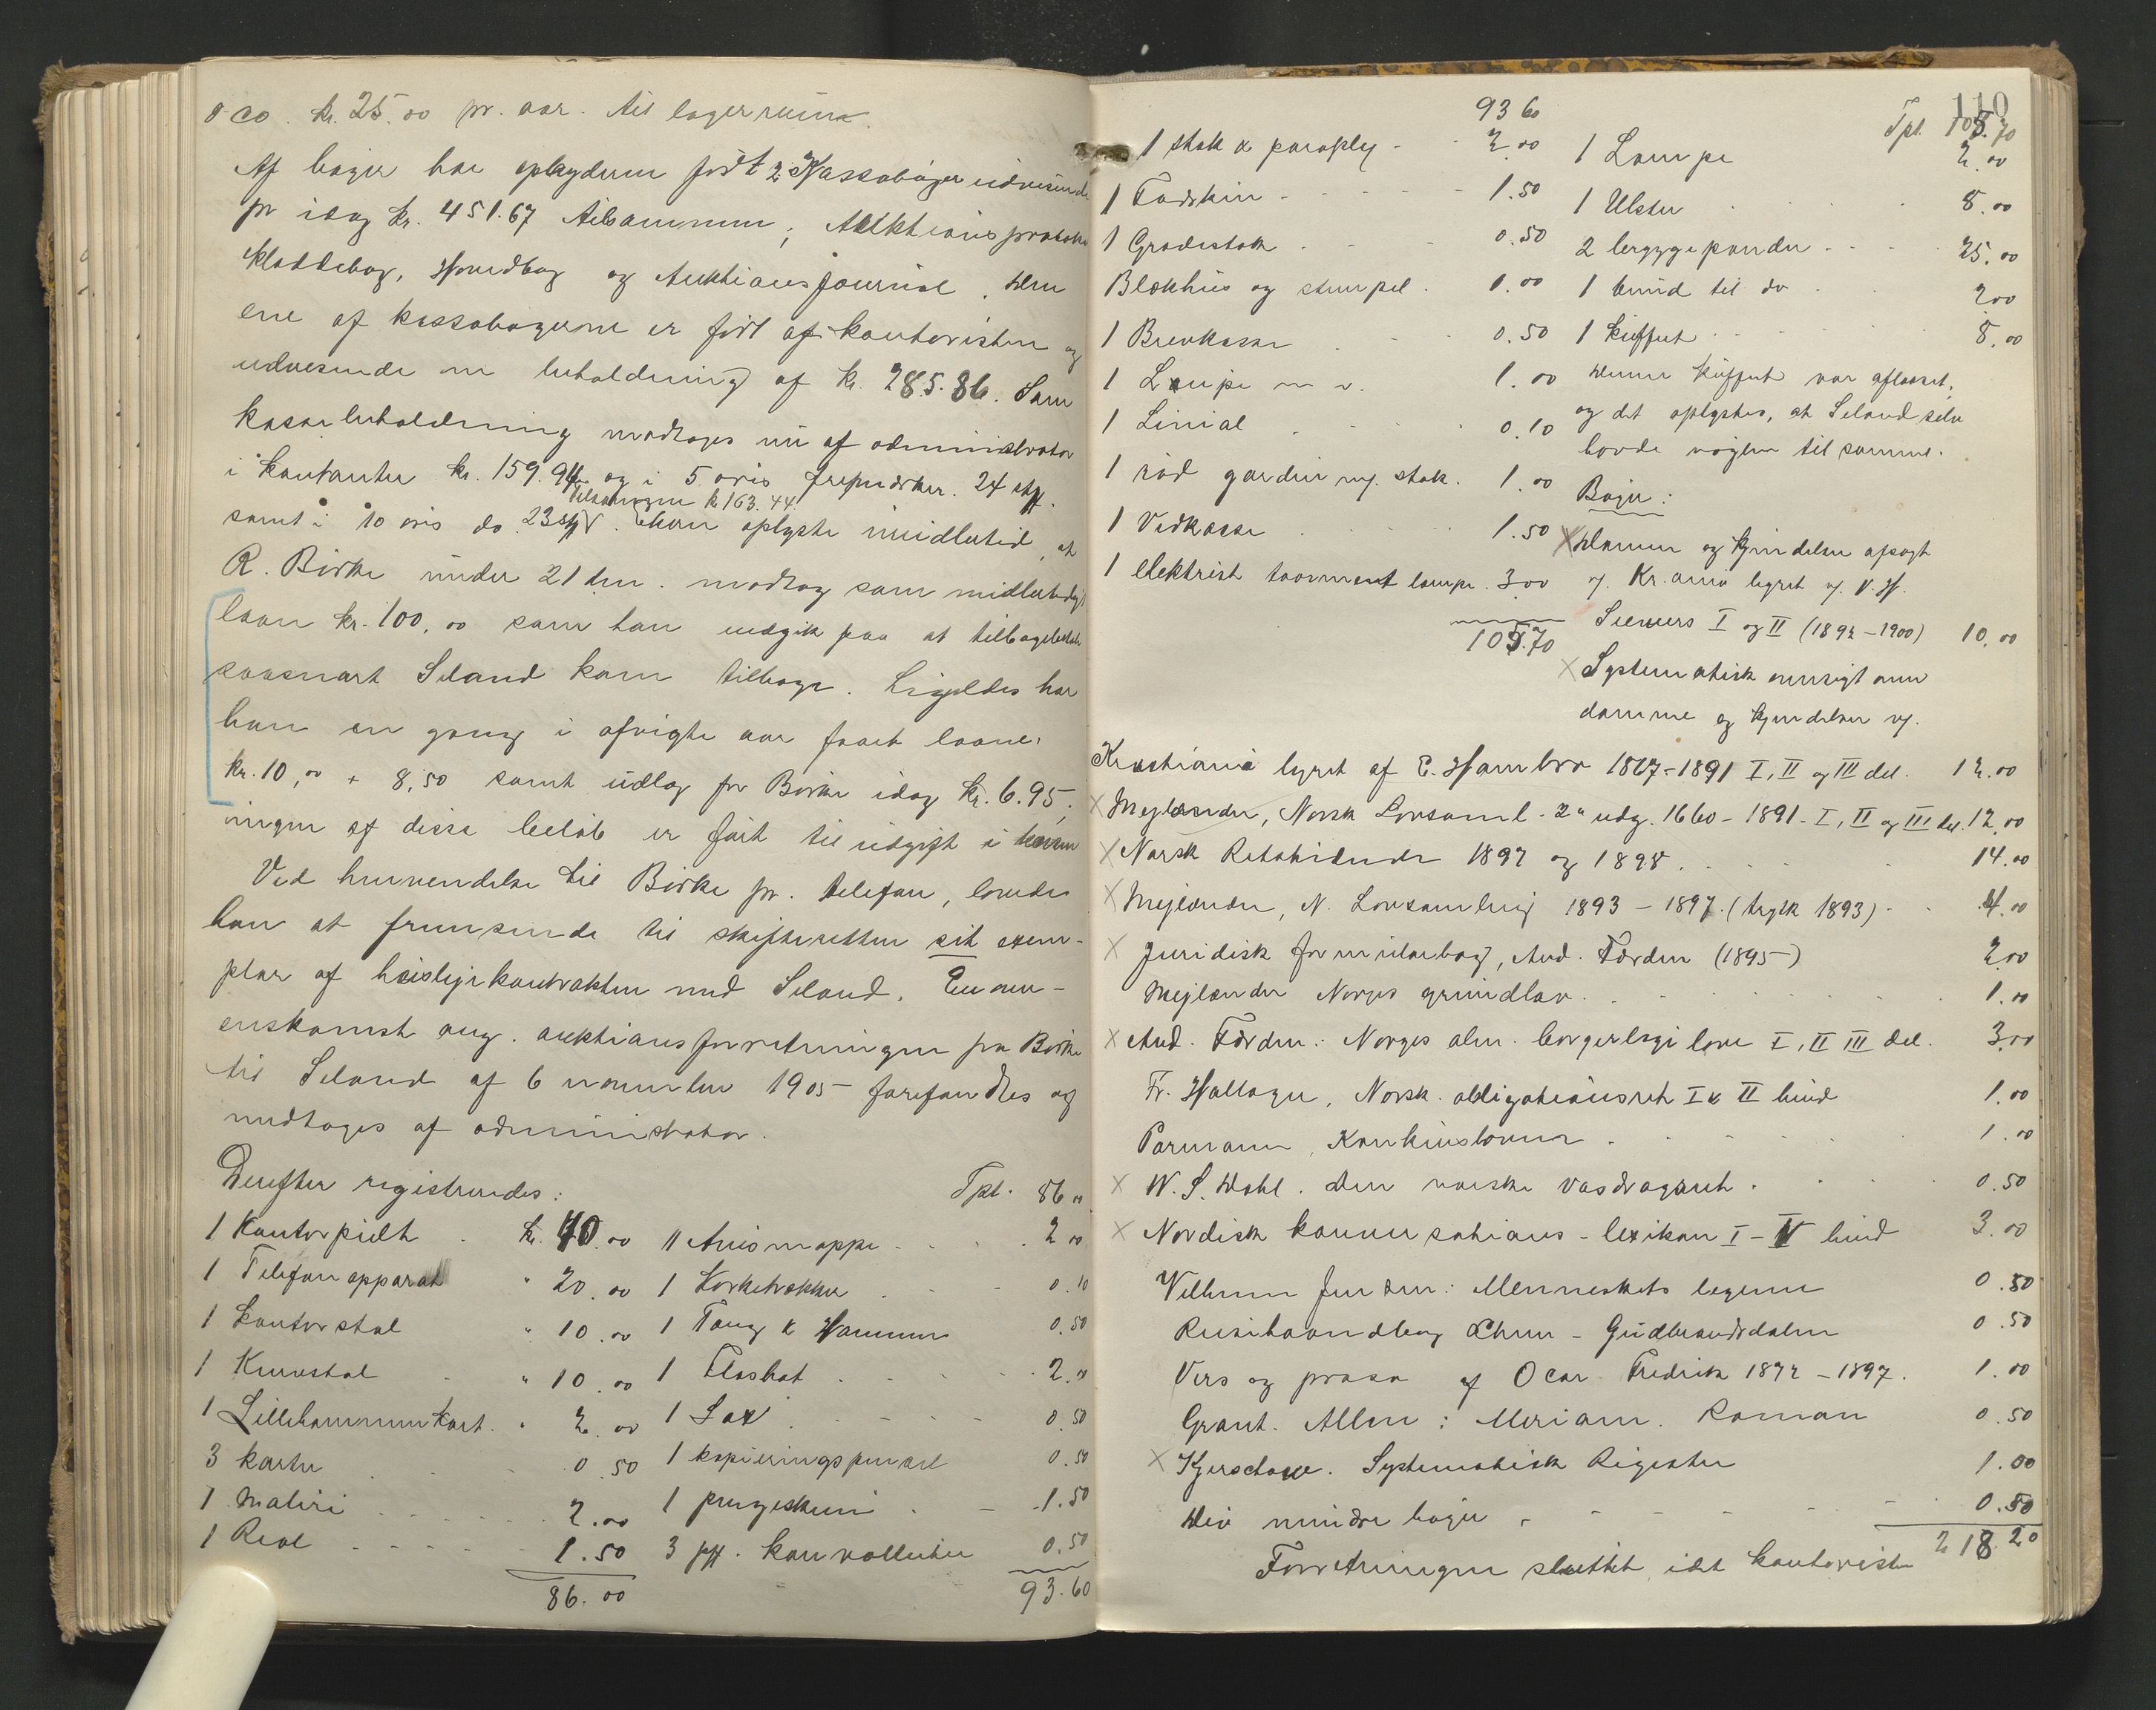 & co. kr. 25.00 pr. aar. til lagerruim.
Af bøger har oplyderen ført 2 Kassabøger udvisende
pr idag kr. 451.67 tilsammen; Auktionsprotokol
Kladdebog, Hovedbog og Auktionsjournal. Den
ene af kassabøgerne er ført af kontoristen og
udvisende en beholdning af kr. 285.86. Som
kassabeholdning modtoges nu af administrator
i kontanter kr. 159.94 og i 5 øris frimærker. 24 stk.
tilsammen kr 163.44
samt i 10 øris do 23 stk. Han oplyste imidlertid, at
R. Birke under 21 dm. modtog som midlertidigt
laan kr. 100.00 som han indgik paa at tilbagebetale
saasnart Seland kom tilbage. Ligeledes har
han en gang i afvigte aar faaet laane
kr. 10,00 + 8,50 samt udlæg for Birke idag kr. 6.95,
ingen af disse beløb er ført til udgift i
Ved henvendelse til Birke pr. telefon, lovede
han at fremsende til skifteretten sit exem-
plar af husleiekontrakten med Seland. En over-
enskomst ang. auktionsforretningen fra Birke
til Seland af 6 november 1905 forefandtes og
modtoges af administrator.
Derefter registreredes:
Tpt. 86.00
1 Kontorpult kr. 40.00
1 Telefonapparat " 20.00
1 Kontorstol " 10.00
1 Kurvstol " 10.00
1 Lillehammerkart " 2.00
3 karter 0.50
1 Maleri 2.00
1 Reol 1.50
86.00
11 Avismappe 2.00
1 Korketrækker 0.10
1 Tang & Hammer 0.50
1 Floshat 2.00
1 Sax 0.50
1 kopieringspensel 0.50
1 pengeskrin 1.50
3 pk. konvolutter 0.50
93.60
110
93 60
1 stok & paraply 2.00
1 Faarskin 1.50
1 Gradestok 0.50
Blækhus og stempel 1.00
1 Brevkasse 0.50
1 Lampe 1.00
1 Linial 0.10
1 rød gardin m/. stok. 1.00
1 Vedkasse 1.50
1 elektrisk taarnent lampe 3.00
105.70
Tpt. 105.70
1 Lampe 2.00
1 Ulster 8.00
2 lergjøgepander 25.00
1 bund til do 2.00
1 kuffert 8.00
Denne kuffert var aflaaset,
og det oplystes, at Seland selv
havde nøglen til samme.
Bøger:
Domme og kjendelser afsagt
v/. Kr.ania byret v/. V. H.
Siewers I og II (1892-1900) 10.00
Systematisk oversigt over
domme og kjendelser v/.
Kristiania byret af E. Hambro 1867-1891 I, II og III del. 12.00
Mejlænder, Norsk Lovsaml. 2den udg. 1660-1891. I, II og III del. 12.00
Norsk Retstidende 1897 og 1898. 14.00
Mejlænder, N. Lovsamling 1893-1897. (trykt 1893) 4.00
Juridisk formularbog, And. Færden (1895) 2.00
Mejlænder Norges grundlov 1.00
And. Færden: Norges alm. borgerlige love I, II III del. 3.00
Fr. Hallager, Norsk obligationsret I & II bind 1.00
Parmann, Konkursloven 1.00
W. S. Dahl. Den norske vasdragsret 0.50
Nordisk konversations-lexikon I-V bind 3.00
Vilhelm Jensen: Menneskets legeme 0.50
Reisehaandbog Lhmr - Gudbrandsdalen 0.50
Vers og prosa af Ocar Fredrik 1872-1897. 1.00
Grant. Allen: Miriam. Roman 0.50
Kjerschow. Systematisk Register 1.00
Div mindre bøger 0.50
218.20
Forretningen sluttet, idet kontoristen